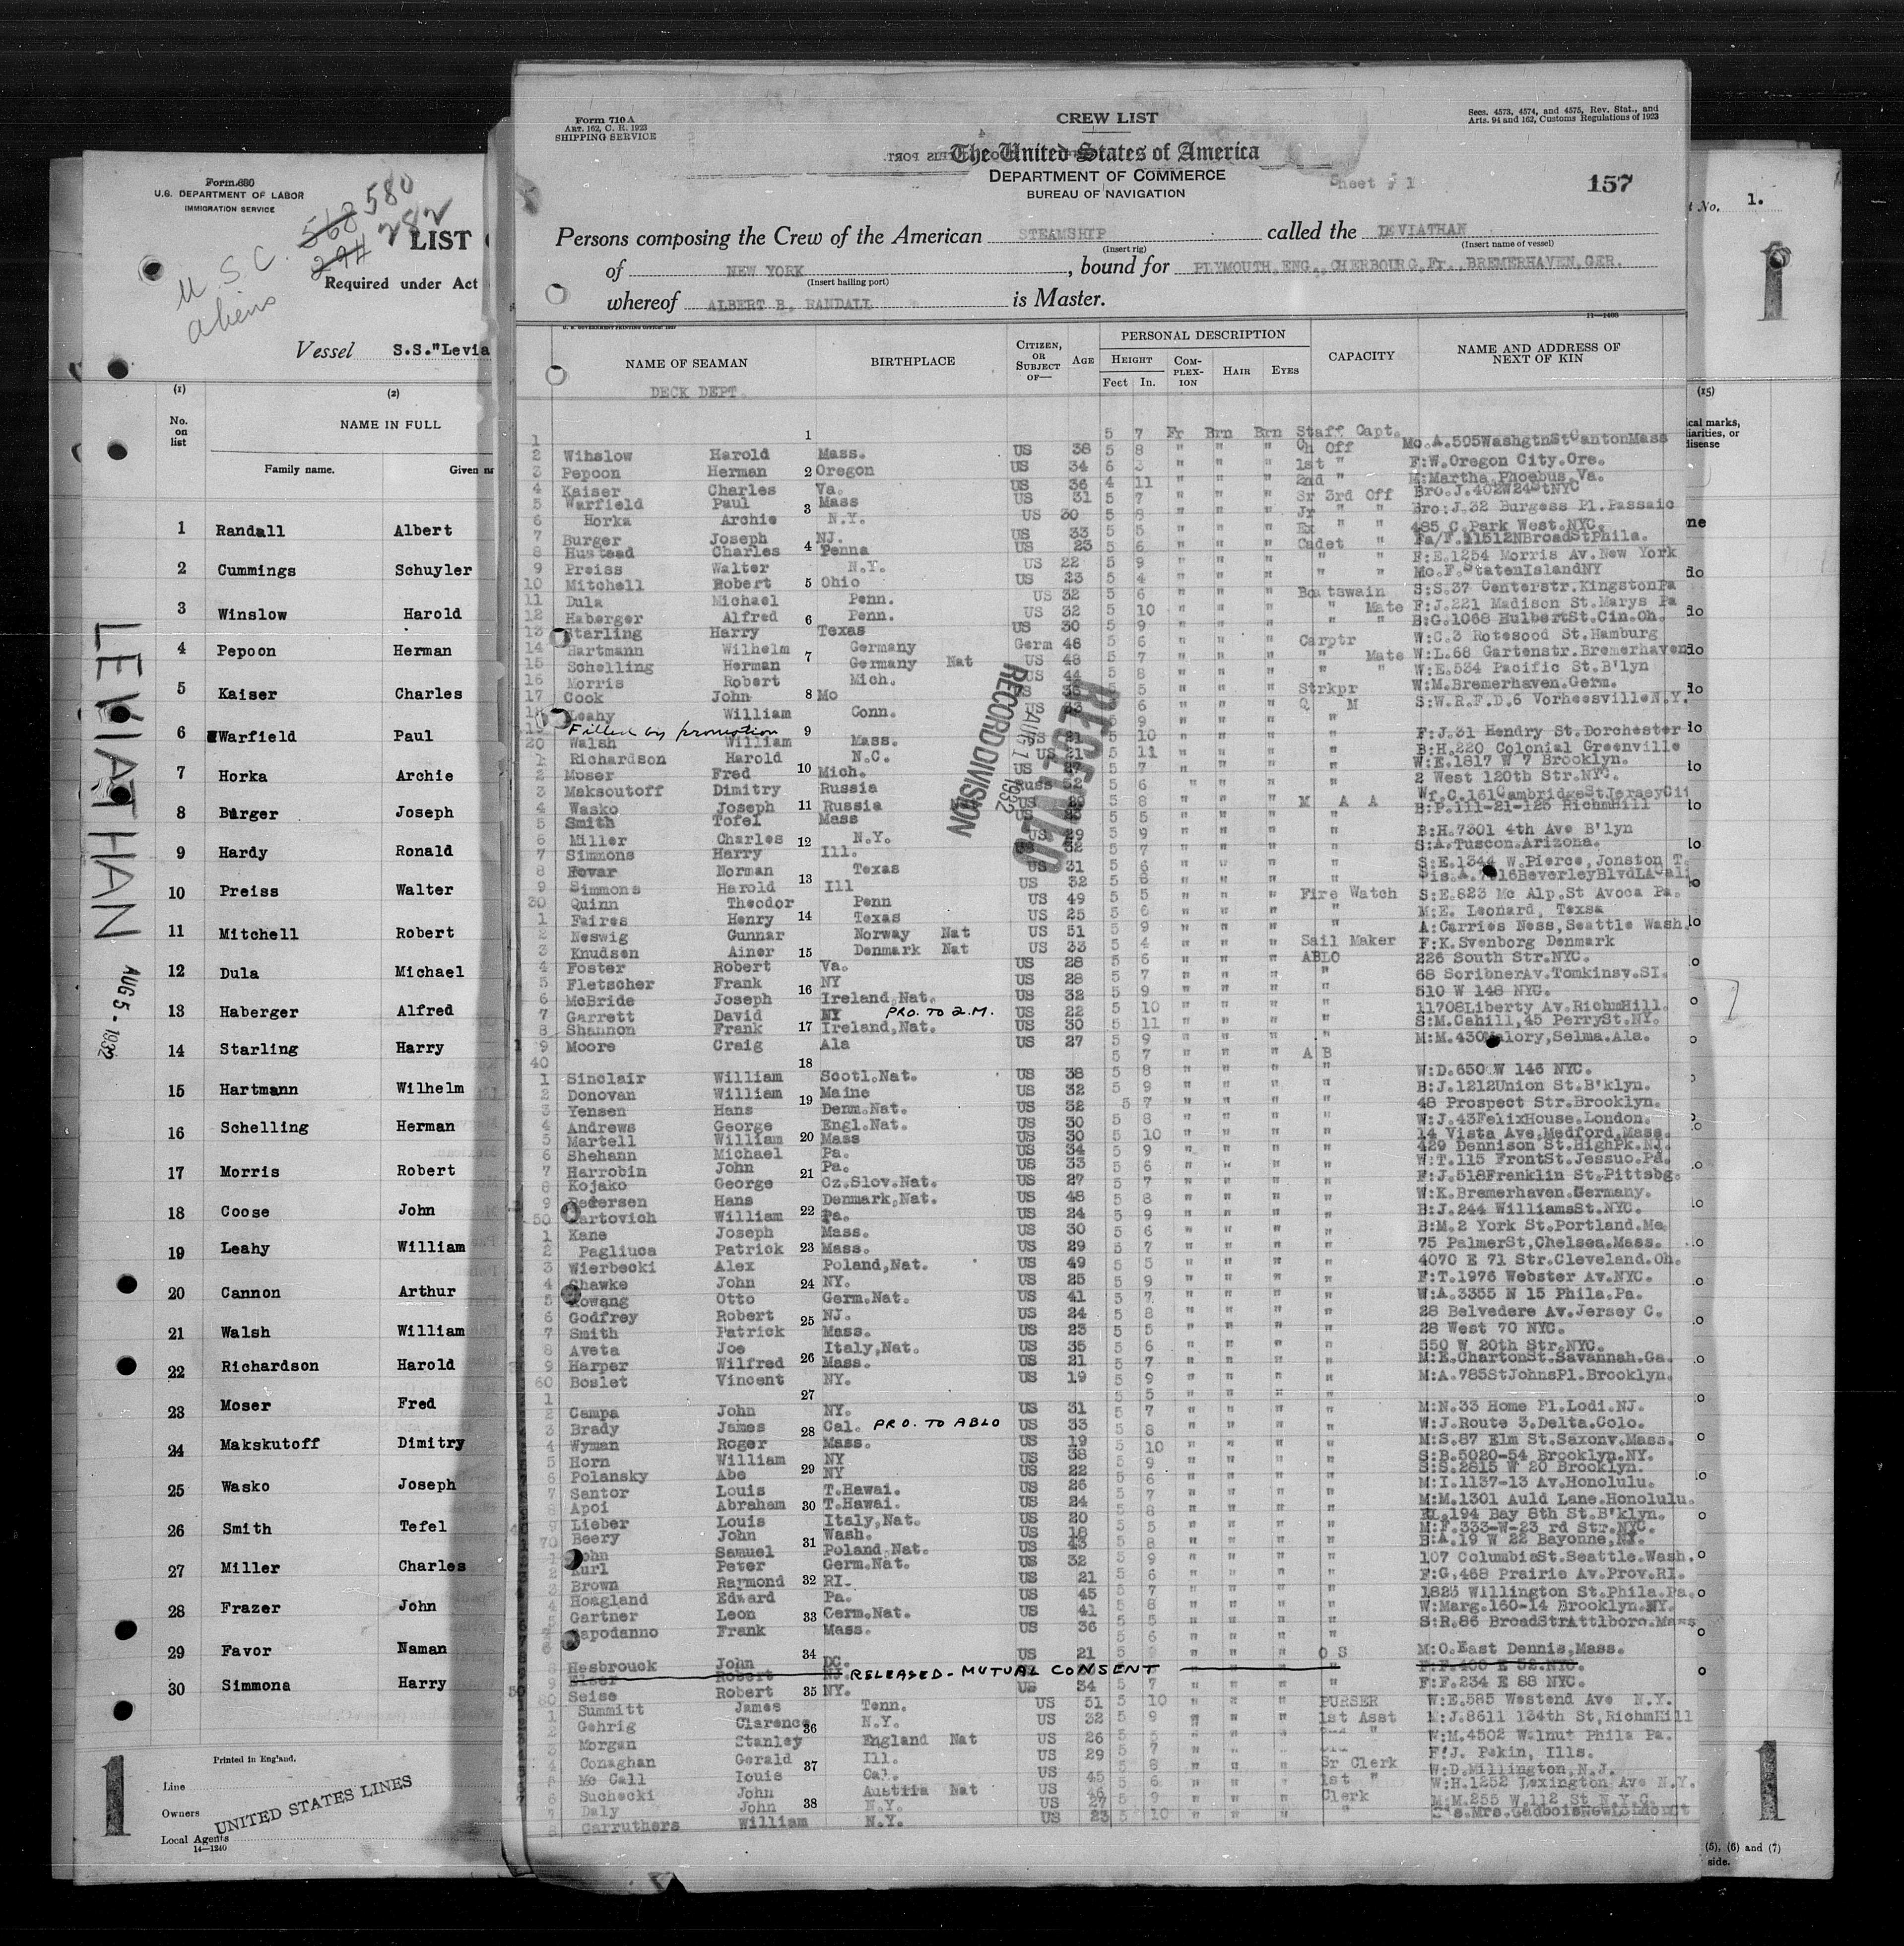 Form 680
U.S. DEPARTMENT OF LABOR
IMMIGRATION SERVICE
568 580
294 282
U.S.C.
aliens
LIST
Required under Act
Vessel S.S."Levia
(1) (2)
No. on list
NAME IN FULL
Family name. Given
1 Randall Albert
2 Cummings Schuyler
3 Winslow Harold
4 Pepoon Herman
5 Kaiser Charles
6 Warfield Paul
7 Horka Archie
8 Burger Joseph
9 Hardy Ronald
10 Preiss Walter
11 Mitchell Robert
12 Dula Michael
13 Haberger Alfred
14 Starling Harry
15 Hartmann Wilhelm
16 Schelling Herman
17 Morris Robert
18 Coose John
19 Leahy William
20 Cannon Arthur
21 Walsh William
22 Richardson Harold
23 Moser Fred
24 Makskutoff Dimitry
25 Wasko Joseph
26 Smith Tefel
27 Miller Charles
28 Frazer John
29 Favor Naman
30 Simmona Harry
LEVIATHAN AUG 5 - 1932
Printed in England.
Line
Owners UNITED STATES LINES
Local Agents
14—1240
1
Form 710 A
ART. 162, C. R. 1923
SHIPPING SERVICE
CREW LIST
Secs. 4573, 4574, and 4575, Rev. Stat., and
Arts. 94 and 162, Customs Regulations of 1923
The United States of America
DEPARTMENT OF COMMERCE
BUREAU OF NAVIGATION
Sheet # 1
157
Persons composing the Crew of the American STEAMSHIP called the LEVIATHAN
(Insert rig) (Insert name of vessel)
of NEW YORK, bound for PLYMOUTH,ENG., CHERBOURG,Fr., BREMERHAVEN,GER.
(Insert hailing port)
whereof ALBERT B. RANDALL is Master.
11—1408
NAME OF SEAMAN BIRTHPLACE CITIZEN, OR SUBJECT OF— AGE PERSONAL DESCRIPTION CAPACITY NAME AND ADDRESS OF NEXT OF KIN
HEIGHT COMPLEXION HAIR EYES
Feet In.
DECK DEPT
1 5 7 Fr Brn Brn Staff Capt.
2 Winslow Harold Mass. US 38 5 8 " " " Ch Off Mo.A.505WashgtnStCantonMass
3 Pepoon Herman Oregon US 34 6 3 " " " 1st " F:W.Oregon City.Ore.
4 Kaiser Charles Va. US 36 4 11 " " " 2nd " M:Martha Phoebus Va.
5 Warfield Paul Mass US 31 5 7 " " " Sr 3rd Off Bro.J.402W24StNYC
6 Horka Archie N.Y. US 30 5 8 " " " Jr " " Bro:J.32 Burgess Pl.Passaic
7 Burger Joseph NJ. US 33 5 5 " " " Ex " " 485 C.Park West.NYC.
8 Hustead Charles Penna US 23 5 6 " " " Cadet " Fa/F.11512NBroadStPhila.
9 Preiss Walter N.Y. US 22 5 9 " " " " " F:E.1254 Morris Av.New York
10 Mitchell Robert Ohio US 23 5 4 " " " " " Mo.F.StatenIslandNY
11 Dula Michael Penn. US 32 5 6 " " " Boatswain S:S.37 Centerstr.KingstonPa
12 Haberger Alfred Penn. US 32 5 10 " " " " Mate F:J.221 Madison St.Marys Pa
13 Starling Harry Texas US 30 5 9 " " " " " B:G.1068 HulbertSt.Cin.Oh.
14 Hartmann Wilhelm Germany Germ 46 5 6 " " " Carptr W:C.3 Rotesood St.Hamburg
15 Schelling Herman Germany Nat US 48 5 7 " " " " Mate W:L.68 Gartenstr.Bremerhaven
16 Morris Robert Mich. US 44 5 8 " " " " " W:E.534 Pacific St.B'lyn
17 Cook John Mo 5 5 " " " Strkpr W:M.Bremerhaven.Germ.
18 Leahy William Conn. US 6 " " " Q M S:W.R.F.D.6 VorheesvilleN.Y.
19 Filled by promotion
20 Walsh William Mass. US 21 5 10 " " " " F:J.31 Hendry St.Dorchester
1 Richardson Harold N.C. US 21 5 11 " " " " B:H.220 Colonial Greenville
2 Moser Fred Mich. US 27 5 7 " " " " W:E.1817 W 7 Brooklyn.
3 Maksoutoff Dimitry Russia Russ 52 5 6 " " " " 2 West 120th Str.NYC.
4 Wasko Joseph Russia 5 8 " " " M A A Wf.C.161CambridgeStJerseyCit
5 Smith Tofel Mass 5 5 " " " " B:P.111-21-125 RichmHill
6 Miller Charles N.Y. US 29 5 9 " " " " B:H.7301 4th Ave B'lyn
7 Simmons Harry Ill. 52 5 7 " " " " S:A.Tuscon.Arizona.
8 Norman Texas US 31 5 6 " " " " S:E.1344 W.Pierce,Jonston T.
9 Simmons Harold Ill US 32 5 6 " " "
30 Quinn Theodor Penn US 49 5 5 " " " Fire Watch S:E.823 Mc Alp.St Avoca Pa.
1 Faires Henry Texas US 25 5 6 " " " " M:E. Leonard, Texsa
2 Neswig Gunnar Norway Nat US 51 5 9 " " " " A:Carries Ness,Seattle Wash.
3 Knudsen Ainer Denmark Nat US 33 5 4 " " " Sail Maker F:K.Svenborg Denmark
4 Foster Robert Va. US 28 5 6 " " " ABLO 226 South Str.NYC.
5 Fletscher Frank NY US 28 5 7 " " " " 68 ScribnerAv.Tomkinsv.SI.
6 McBride Joseph Ireland,Nat. US 32 5 9 " " " " 510 W 148 NYC.
7 Garrett David NY PRO. TO Q.M. US 22 5 10 " " " " 11708Liberty Av.RichmHill.
8 Shannon Frank Ireland,Nat. US 30 5 11 " " " " S:M.Cahill,45 PerrySt.NY.
9 Moore Craig Ala US 27 5 9 " " " " M:M.430Malory,Selma.Ala.
40 5 7 " " " A B
1 Sinclair William Scotl.Nat. US 38 5 8 " " " " W:D.650 W 146 NYC.
2 Donovan William Maine US 32 5 9 " " " " B:J.1212Union St.B'klyn.
3 Yensen Hans Denm.Nat. US 32 5 7 " " " " 48 Prospect Str.Brooklyn.
4 Andrews George Engl.Nat. US 30 5 8 " " " " W:J.43FelixHouse.London.
5 Martell William Mass US 30 5 10 " " " " 14 Vista Ave.Medford.Mass.
6 Shehann Michael Pa. US 34 5 9 " " " " 429 Dennison St.HighPk.NJ.
7 Harrobin John Pa. US 33 5 6 " " " " W:T.115 FrontSt.Jessuo.Pa.
8 Kojako George Cz.Slov.Nat. US 27 5 7 " " " " F:J.518Franklin St.Pittsbg.
9 Pedersen Hans Denmark,Nat. US 48 5 8 " " " " W:K.Bremerhaven.Germany.
50 artovich William Pa. US 24 5 9 " " " " B:J.244 WilliamsSt.NYC.
1 Kane Joseph Mass. US 30 5 6 " " " " B:M.2 York St.Portland.Me.
2 Pagliuca Patrick Mass. US 29 5 7 " " " " 75 PalmerSt,Chelsea.Mass.
3 Wierbecki Alex Poland,Nat. US 49 5 5 " " " " 4070 E 71 Str.Cleveland.Oh.
4 Shawke John NY. US 25 5 9 " " " " F:T.1976 Webster Av.NYC.
5 Kowang Otto Germ.Nat. US 41 5 7 " " " " W:A.3355 N 15 Phila.Pa.
6 Godfrey Robert NJ. US 24 5 8 " " " " 28 Belvedere Av.Jersey C.
7 Smith Patrick Mass. US 23 5 5 " " " " 28 West 70 NYC.
8 Aveta Joe Italy,Nat. US 35 5 6 " " " " 550 W 20th Str.NYC.
9 Harper Wilfred Mass. US 21 5 7 " " " " M:E.ChartonSt.Savannah.Ga.
60 Boslet Vincent NY. US 19 5 9 " " " " M:A.785StJohnsPl.Brooklyn.
1 5 5 " " " "
2 Campa John NY. US 31 5 7 " " " " M:N.33 Home Pl.Lodi.NJ.
3 Brady James Cal. PRO. TO ABLO US 33 5 8 " " " " W:J.Route 3.Delta.Colo.
4 Wyman Roger Mass. US 19 5 10 " " " " M:S.87 Elm St.Saxonv.Mass.
5 Horn William NY US 38 5 9 " " " " S:B.5020-54 Brooklyn.NY.
6 Polansky Abe NY US 22 5 6 " " " " S:S.2815 W 20 Brooklyn.
7 Santor Louis T.Hawai. US 26 5 7 " " " " M:I.1137-13 Av.Honolulu.
8 Apoi Abraham T.Hawai. US 24 5 8 " " " " M:M.1301 Auld Lane.Honolulu.
9 Lieber Louis Italy,Nat. US 20 5 5 " " " " 194 Bay 8th St.B'klyn.
70 Beery John Wash. US 18 5 8 " " " " M:F.333-W-23 rd Str.NYC.
1 John Samuel Poland,Nat. US 43 5 9 " " " " B:A.19 W 22 Bayonne,NJ.
2 Kurl Peter Germ.Nat. US 32 5 6 " " " " 107 ColumbiaSt.Seattle.Wash.
3 Brown Raymond RI. US 21 5 7 " " " " F:G,468 Prairie Av.Prov.RI.
4 Hoagland Edward Pa. US 45 5 8 " " " " 1823 Willington St.Phila.Pa.
5 Gartner Leon Germ.Nat. US 41 5 5 " " " " W:Marg.160-14 Brooklyn.NY.
Capodanno Frank Mass. US 36 5 6 " " " " S:R.86 BroadStrAttlboro.Mass
8 Hesbrouck John DC. US 21 5 " " " O S M:O.East Dennis,Mass.
9 Robert NJ. RELEASED - MUTUAL CONSENT
80 Seise Robert NY. US 34 5 7 " " " " F:F.234 E 88 NYC.
1 Summitt James Tenn. US 51 5 10 " " " PURSER W:E.585 Westend Ave N.Y.
2 Gehrig Clarence N.Y. US 32 5 9 " " " 1st Asst M:J.8611 134th St,RichmHill
3 Morgan Stanley England Nat US 26 5 " " " 2nd " W:M.4502 Walnut Phila Pa.
4 Conaghan Gerald Ill. US 29 5 7 " " " F:J. Pekin, Ills.
5 Mc Call Louis Cal. US 45 5 8 " " " Sr Clerk W:D.Millington,N.J.
6 Suchecki John Austria Nat US 46 5 6 " " " 1st " W:H.1252 Lexington Ave N.Y.
7 Daly John N.Y. US 27 5 9 " " " Clerk M:M.255 W.112 St N.Y.C.
8 Carruthers William N.Y. US 23 5 10 " " " "
RECEIVED
AUG 1 1932
RECORD DIVISION
t No. 1.
1
(15)
cal marks,
liarities, or
disease
1
(5), (6) and (7)
side.